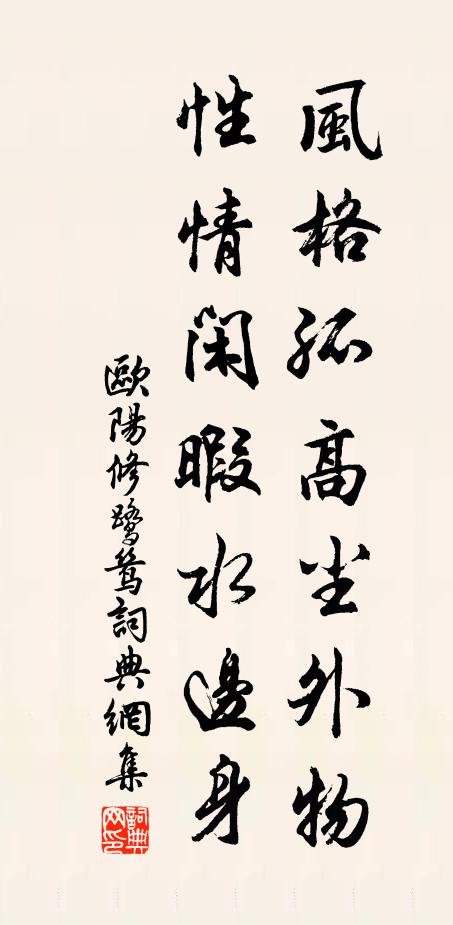 風格孤高尘外物
性情閑暇水邊身
歐陽修鷺鷥詞典網集
詞典网印